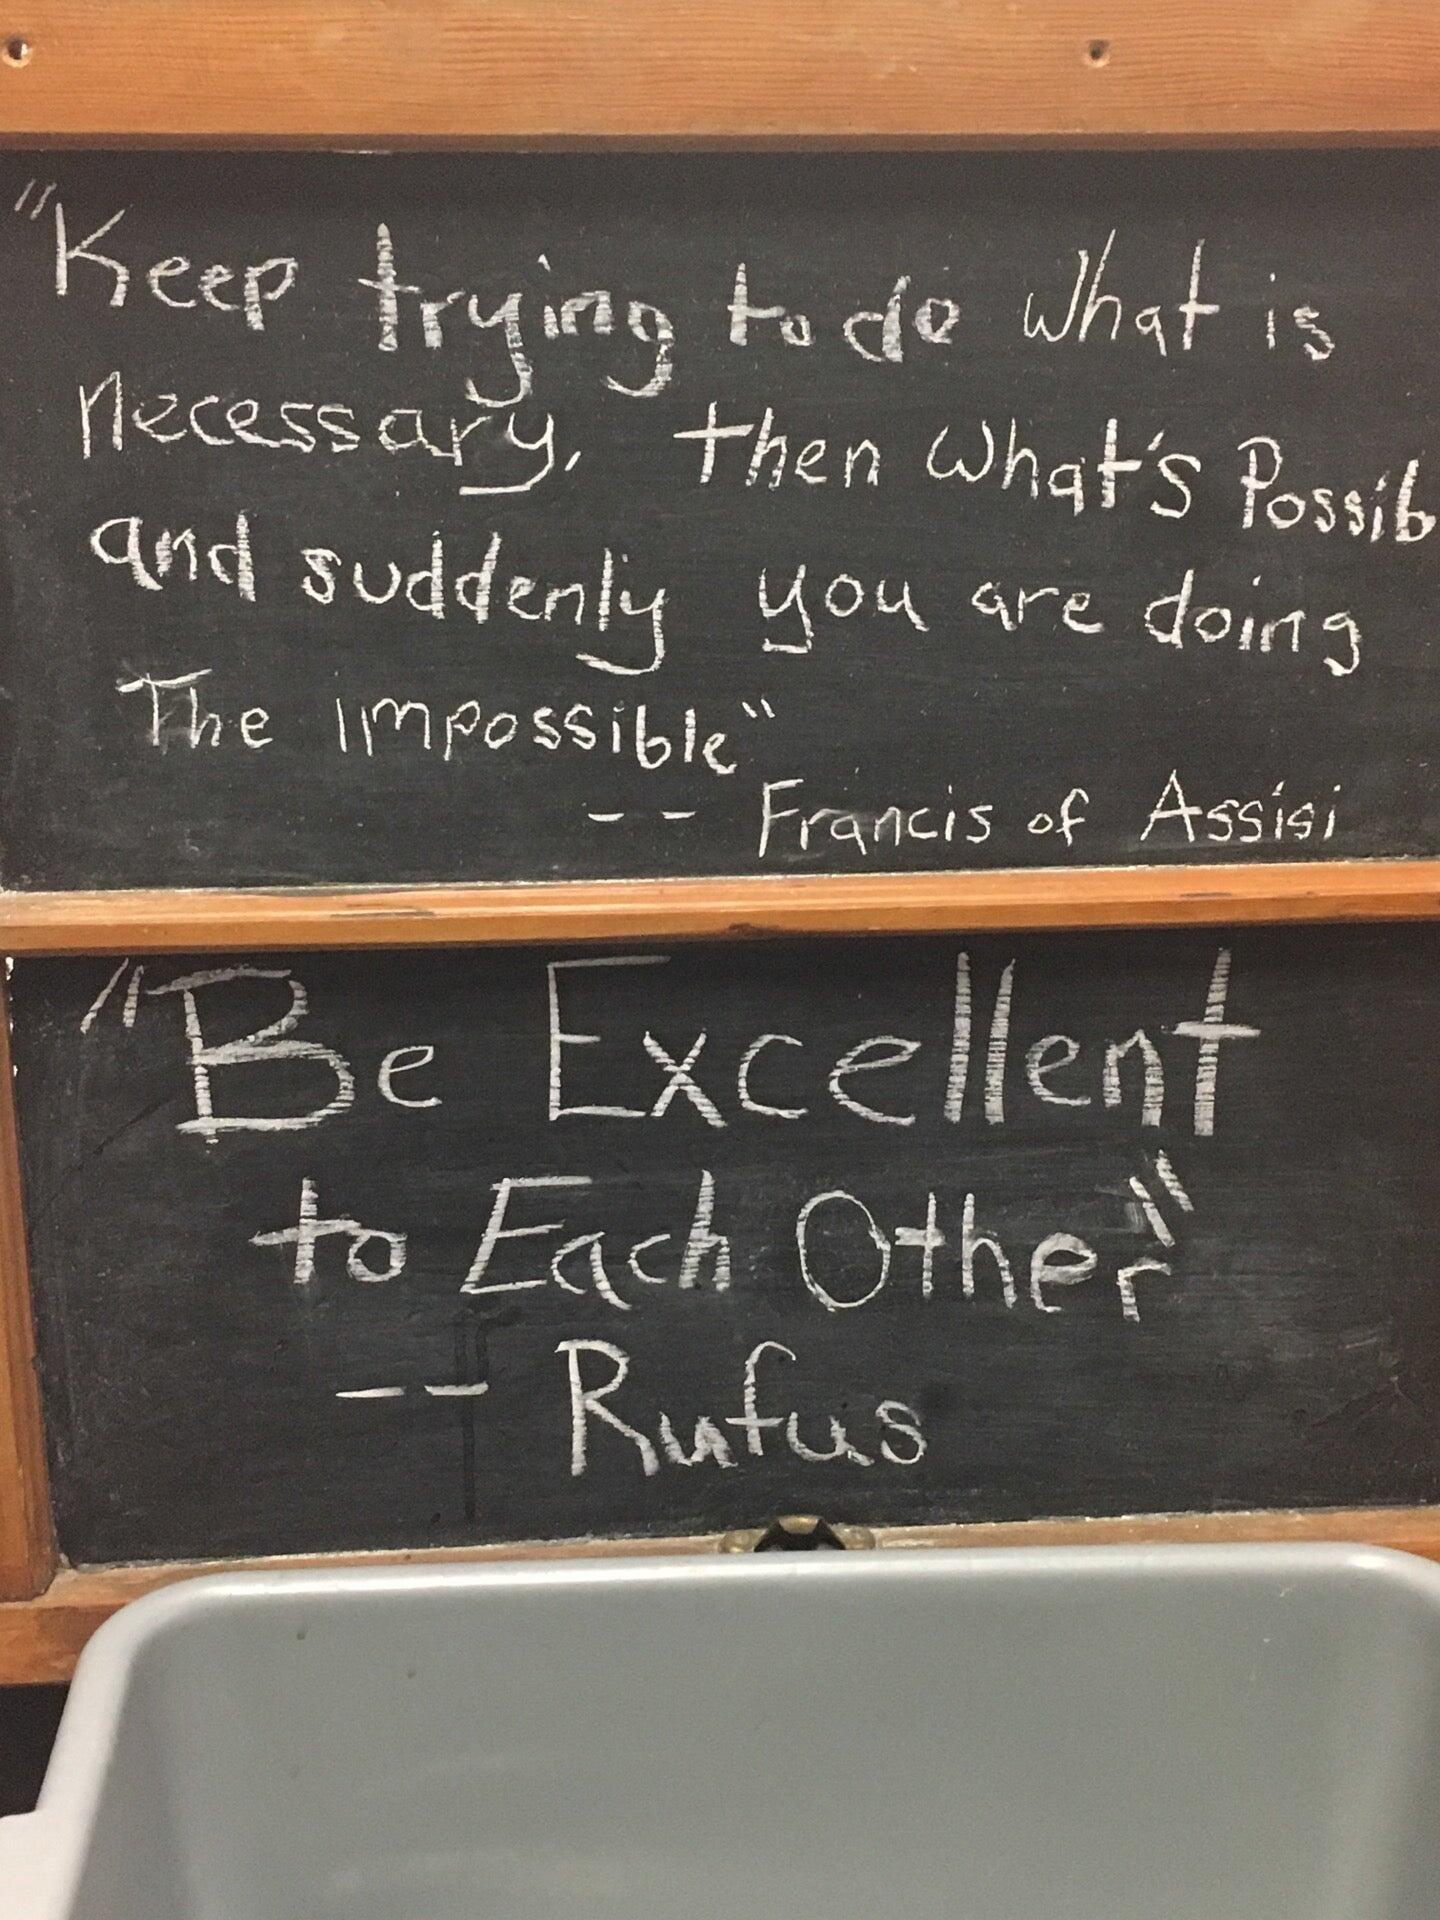 "Keep trying to do what is
necessary, then what's Possib
and suddenly you are doing
The impossible"
-- Francis of Assisi
"Be Excellent
to Each Other"
-- Rufus